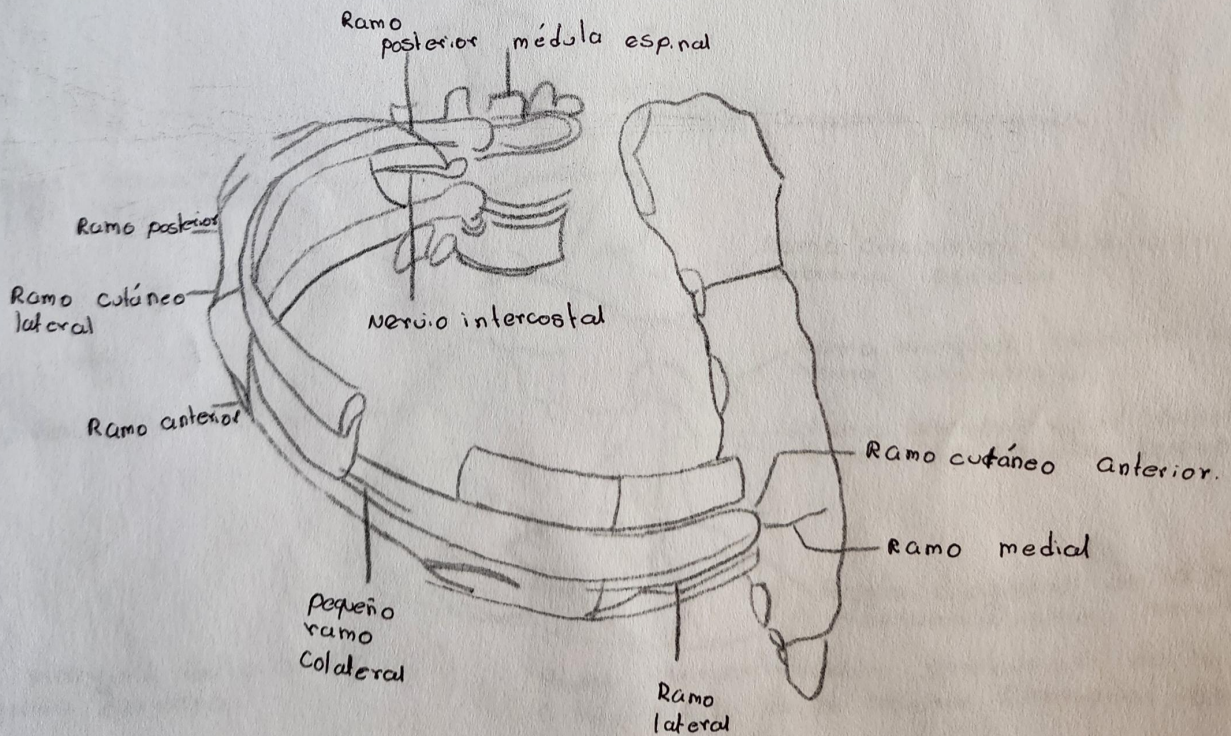 Ramo
posterior médula espinal
Ramo posterior
Ramo cutáneo
lateral
Nervio intercostal
Ramo anterior
Ramo cutáneo anterior.
Ramo medial
pequeño
ramo
colateral
Ramo
lateral